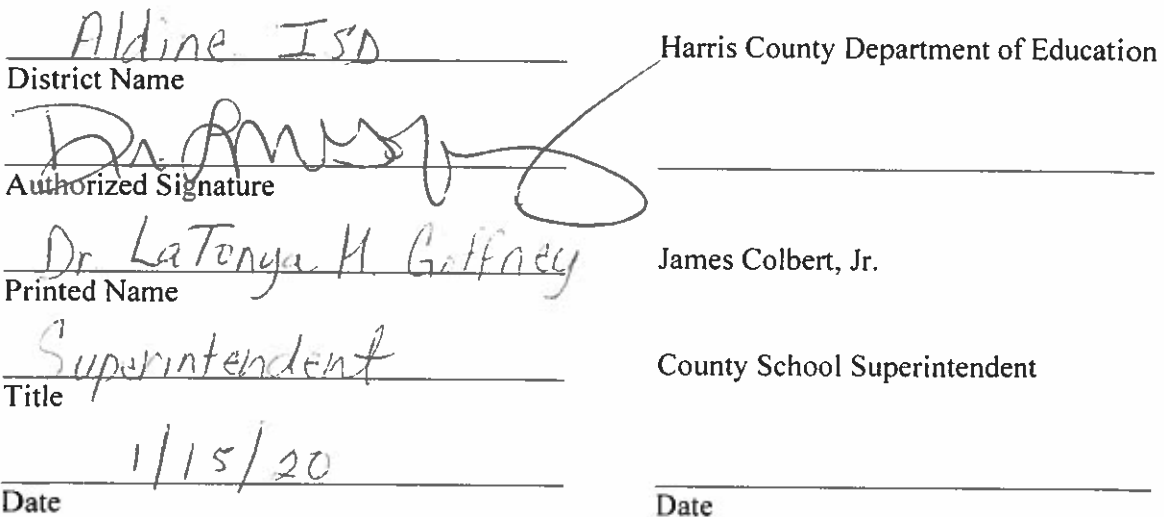 Aldine ISD
District Name
Dr.
Authorized Signature
Dr LaTonya M Goffney
Printed Name
Superintendent
Title
1/15/20
Date
Harris County Department of Education
James Colbert, Jr.
County School Superintendent
Date